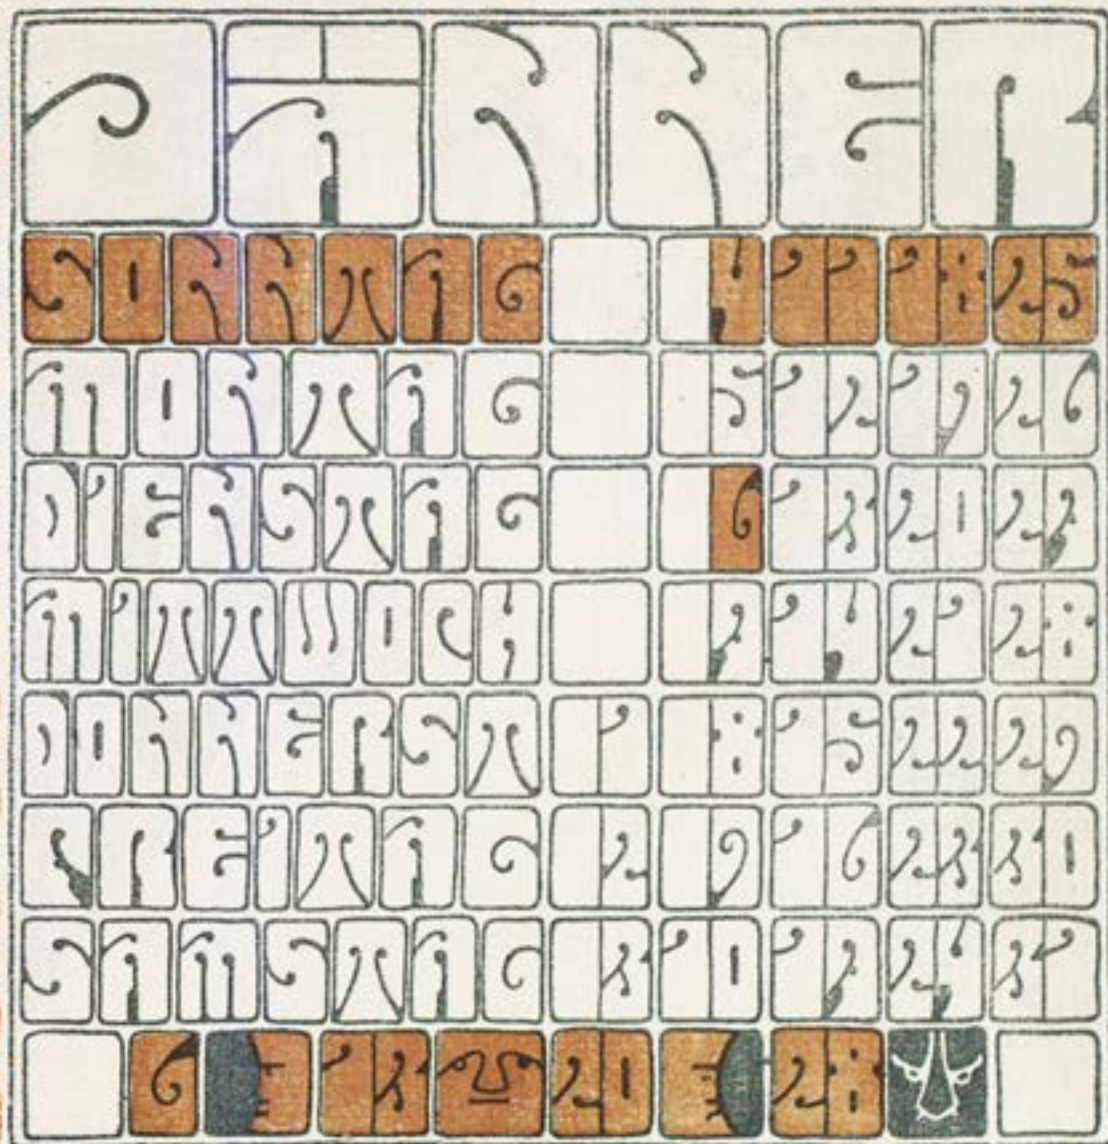 JÄNNER
SONNTAG 4 11 18 25
MONTAG 5 12 19 26
DIENSTAG 6 13 20 27
MITTWOCH 7 14 21 28
DONNERST 1 8 15 22 29
FREITAG 2 9 16 23 30
SAMSTAG 3 10 17 24 31
6 13 20 28